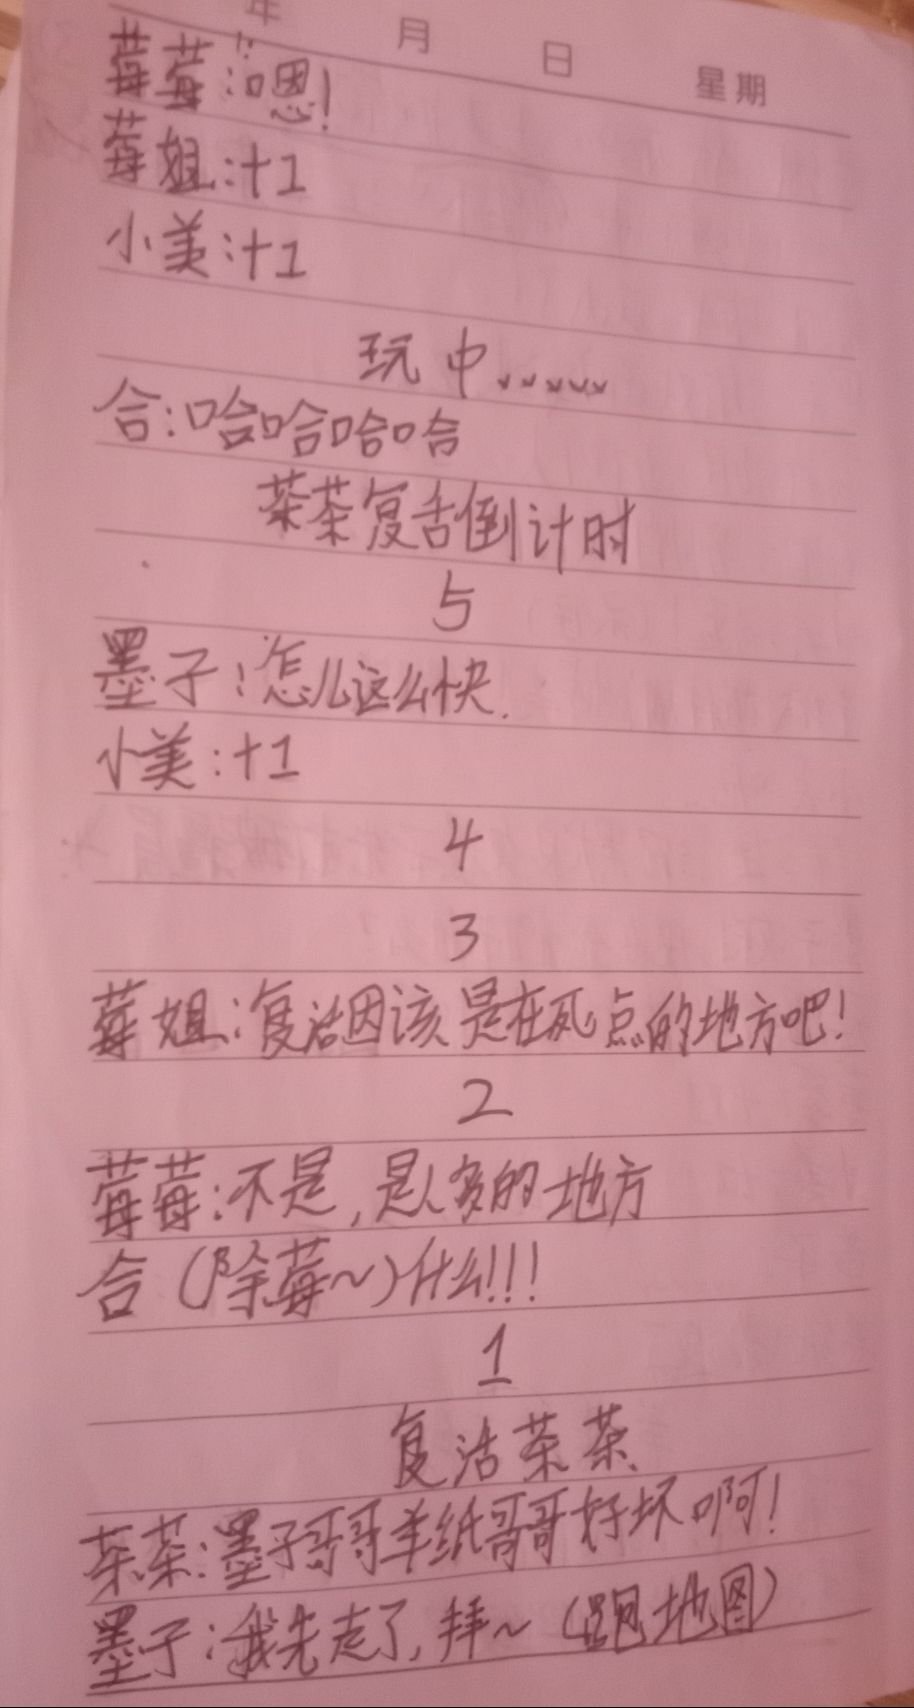 年 月 日 星期
莓莓:嗯!
莓姐:+1
小美:+1
玩中.....
合:哈哈哈哈
茶茶复舌倒计时
5
墨子:怎儿这么快.
小美:+1
4
3
莓姐:复活因该是在死点的地方吧!
2
莓莓:不是,是人多的地方
合(除莓~)什么!!!
1
复活茶茶.
茶茶:墨子哥哥羊纸哥哥好坏啊!
墨子:我先走了,拜~(跑地图)